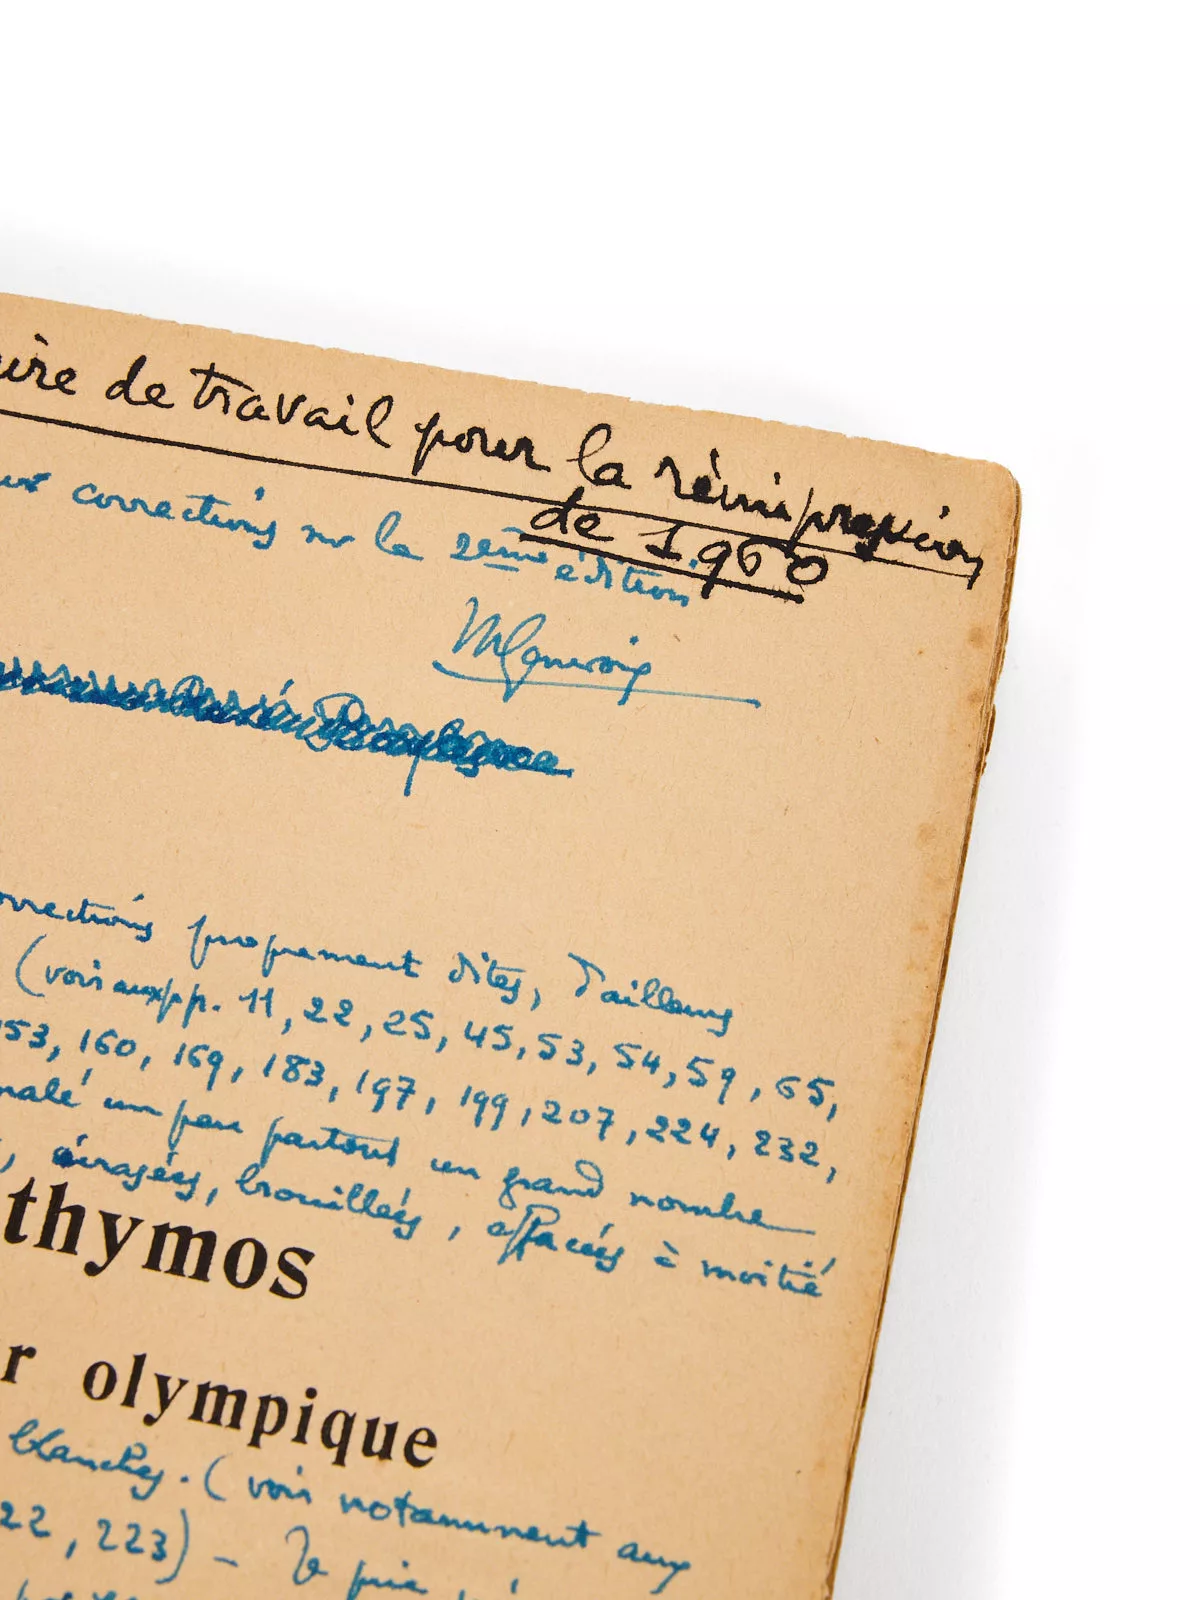 ire de travail pour la réimpression
de 1960
corrections sur la 2ème édition
MGenevoix
orrections proprement dites, d'ailleurs
(voir aux pp. 11, 22, 25, 45, 53, 54, 59, 65,
153, 160, 169, 183, 197, 199, 207, 224, 232,
nalé un peu partout un grand nombre
écrasées, brouillées, effacées à moitié
thymos
r olympique
blanches. (voir notamment aux
22, 223) - Je prie